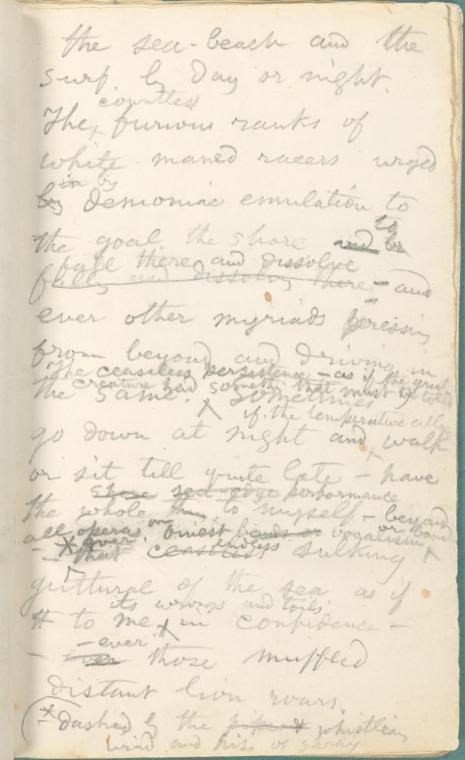 the sea-beach and the
surf by day or night.
countless
The furious ranks of
white-maned racers urged
in by
by demoniac emulation to
to
the goal the shore and be
fall there and dissolve
fully and dissolving there – and
ever other myriads pressing
from beyond and driving in
The ceaseless persistence – as if the great
creature had something that must be
the same. Sometimes
if the temperature allows
go down at night and walk
or sit till quite late – have
these sea-edge performance
the whole to myself – beyond
all opera or finest vocalism or band
* over. endless
– that ceaseless sulking
guttural of the sea as if
its wrongs and toils
to me in confidence –
– ever
– ever those muffled
distant lion roars.
(* dashed by the whistling
wind and hiss of spray